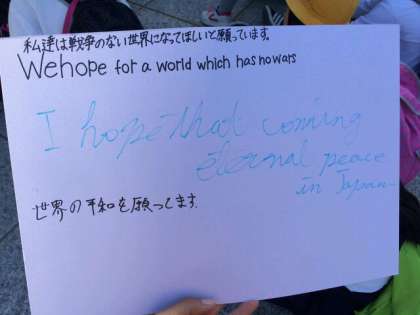 私達は戦争のない世界になってほしいと願っています。
We hope for a world which has no wars
I hope that coming
eternal peace
in Japan
世界の平和を願ってます